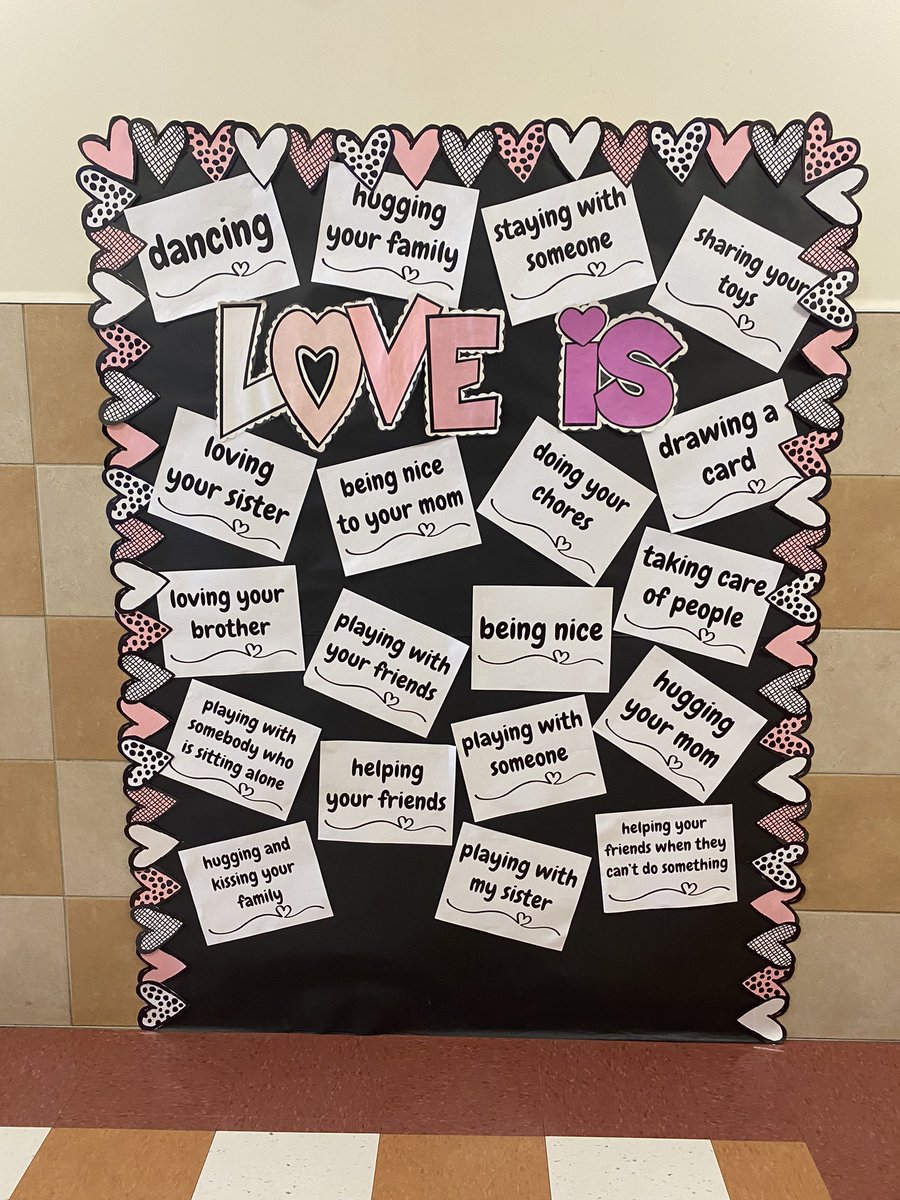 dancing
hugging
your family
staying with
someone
sharing your
toys
LOVE is
loving
your sister
being nice
to your mom
doing your
chores
drawing a
card
loving your
brother
playing with
your friends
being nice
taking care
of people
playing with
somebody who
is sitting alone
helping
your friends
playing with
someone
hugging
your mom
hugging and
kissing your
family
playing with
my sister
helping your
friends when they
can't do something